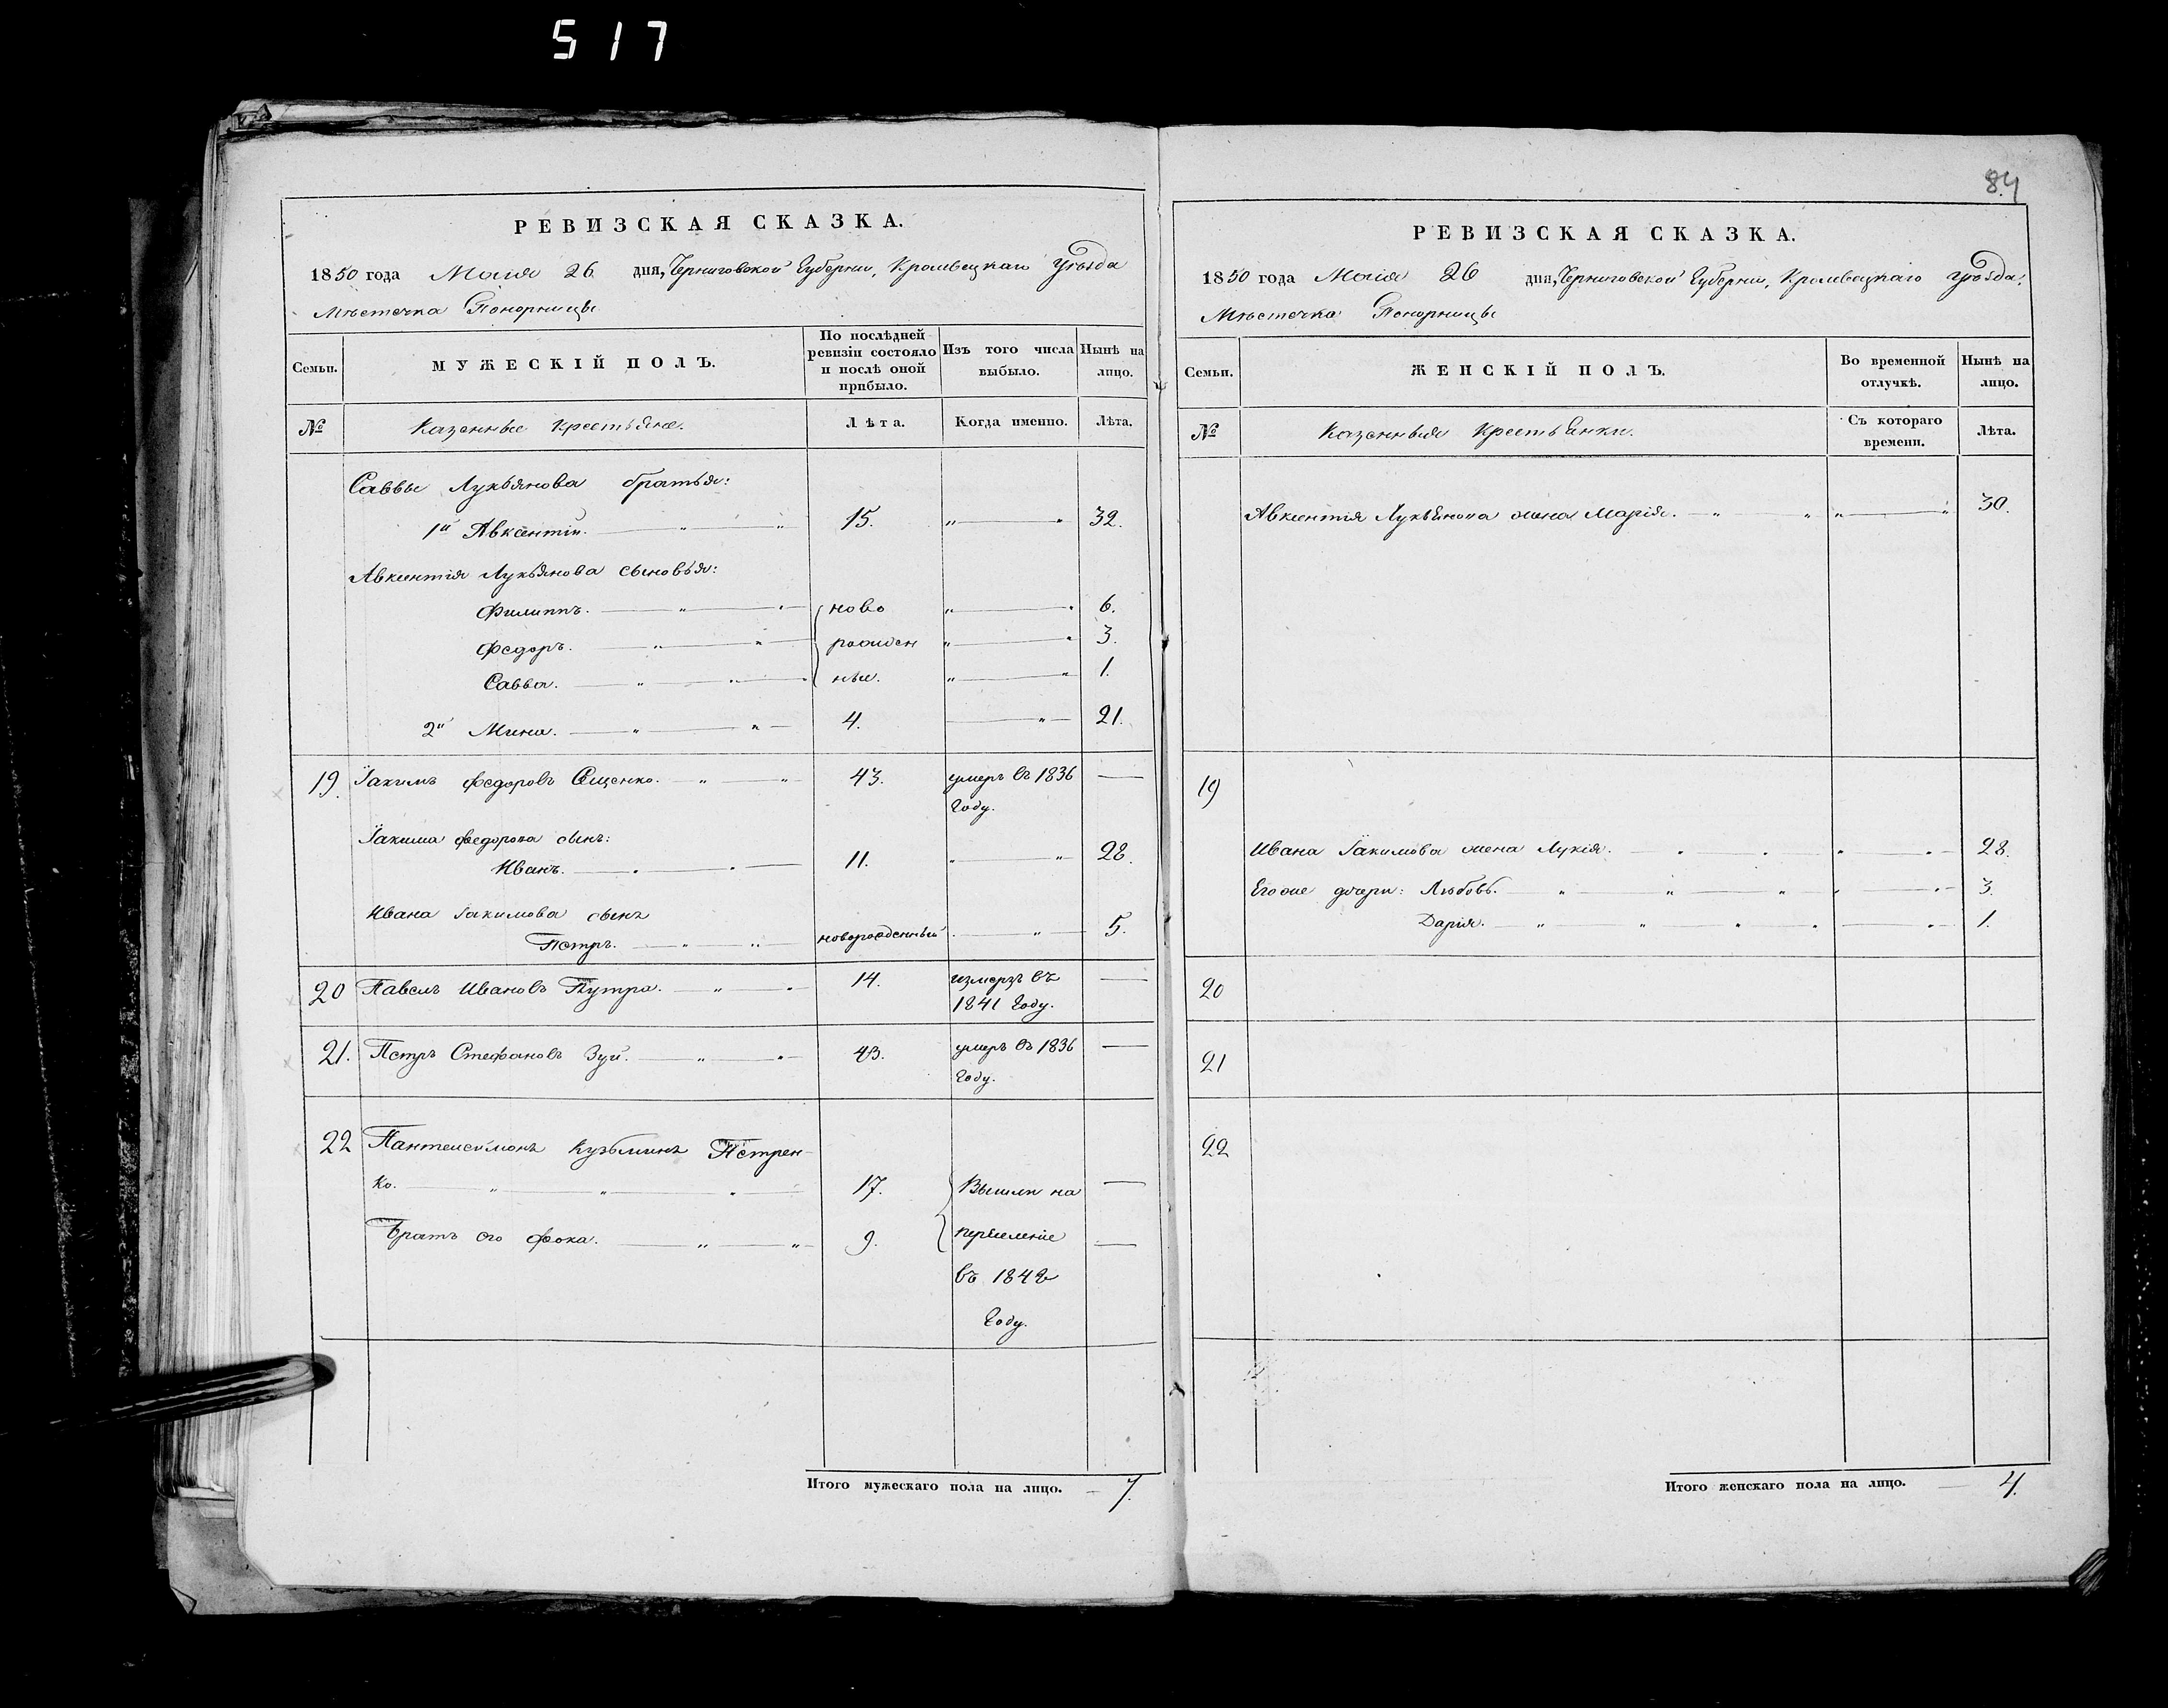 517
84
РЕВИЗСКАЯ СКАЗКА.
1850 года Маія 26 дня, Черниговской Губерніи, Кролевецкаго Уѣзда
Мѣстечка Понорницы
Семьи. МУЖЕСКІЙ ПОЛЪ. По послѣдней ревизіи состояло и послѣ оной прибыло. Изъ того числа выбыло. Нынѣ на лицо.
№ Казенные Крестьяне. Лѣта. Когда именно. Лѣта.
Саввы Лукьянова братья:
1й Авксентій. 15. 32.
Авксентія Лукьянова сыновья:
Филиппъ. ново 6.
Федоръ. рожден 3.
Савва. ные. 1.
2й Мина. 4. 21.
19. Іакимъ Федоровъ Ященко. 43. умеръ въ 1836
Году.
Іакима Федорова сынъ:
Иванъ. 11. 28.
Ивана Іакимова сынъ
Петръ. новорожденный 5.
20 Павелъ Ивановъ Путра. 14. умеръ въ
1841 Году.
21. Петръ Стефановъ Зуй. 43. умеръ въ 1836
Году.
22 Пантелеймонъ Кузьминъ Петрен-
ко. 17. Вышли на
Братъ его Фока. 9. переселеніе
въ 1842
Году.
Итого мужескаго пола на лицо. 7.
РЕВИЗСКАЯ СКАЗКА.
1850 года Маія 26 дня, Черниговской Губерніи, Кролевецкаго Уѣзда,
Мѣстечка Понорницы
Семьи. ЖЕНСКІЙ ПОЛЪ. Во временной отлучкѣ. Нынѣ на лицо.
№ Казенныя Крестьянки. Съ котораго времени. Лѣта.
Авксентія Лукьянова жена Марія. 30.
19
Ивана Іакимова жена Лукія. 28.
Его же дочери: Любовь. 3.
Дарія. 1.
20
21
22
Итого женскаго пола на лицо. 4.